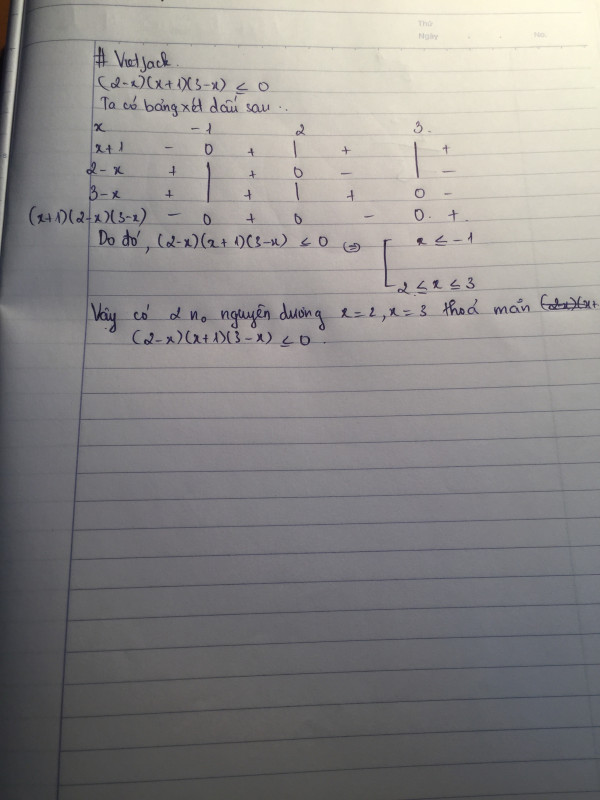 Thứ
Ngày . . No.
# VietJack.
(2-x)(x+1)(3-x) ≤ 0
Ta có bảng xét dấu sau :
x -1 2 3.
x+1 - 0 + | + | +
2-x + | + 0 - | -
3-x + | + | + 0 -
(x+1)(2-x)(3-x) - 0 + 0 - 0. +.
Do đó, (2-x)(x+1)(3-x) ≤ 0 ⇔ [ x ≤ -1
2 ≤ x ≤ 3
Vậy có 2 no nguyên dương x=2, x=3 thoả mãn (2x)(x+
(2-x)(x+1)(3-x) ≤ 0.